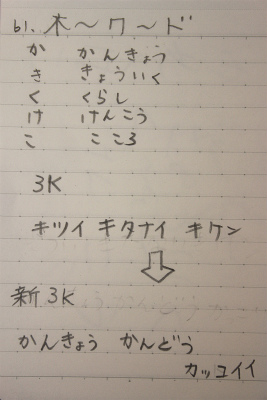 61. 木〜ワ〜ド
か かんきょう
き きょういく
く くらし
け けんこう
こ こころ
3K
キツイ キタナイ キケン
新3K
かんきょう かんどう
カッコイイ